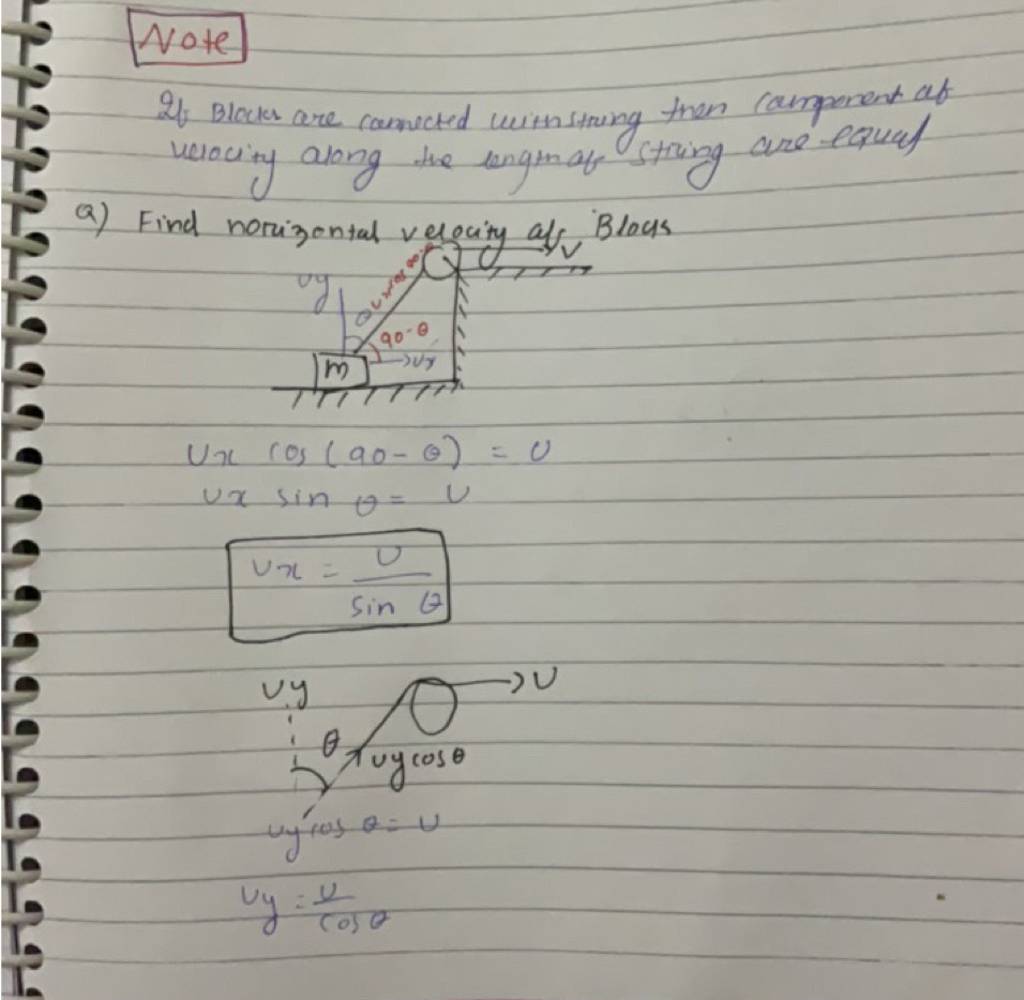 Note
If Blocks are connected with string then component of
velocity along the length of string are equal
Q) Find horizontal velocity of Block
V
vy
θ
90-θ
vx
m
Ux cos (90-θ) = U
Ux sin θ = U
Ux = U
sin θ
Uy
U
θ
uy cos θ
uy cos θ = U
Uy = U
cos θ